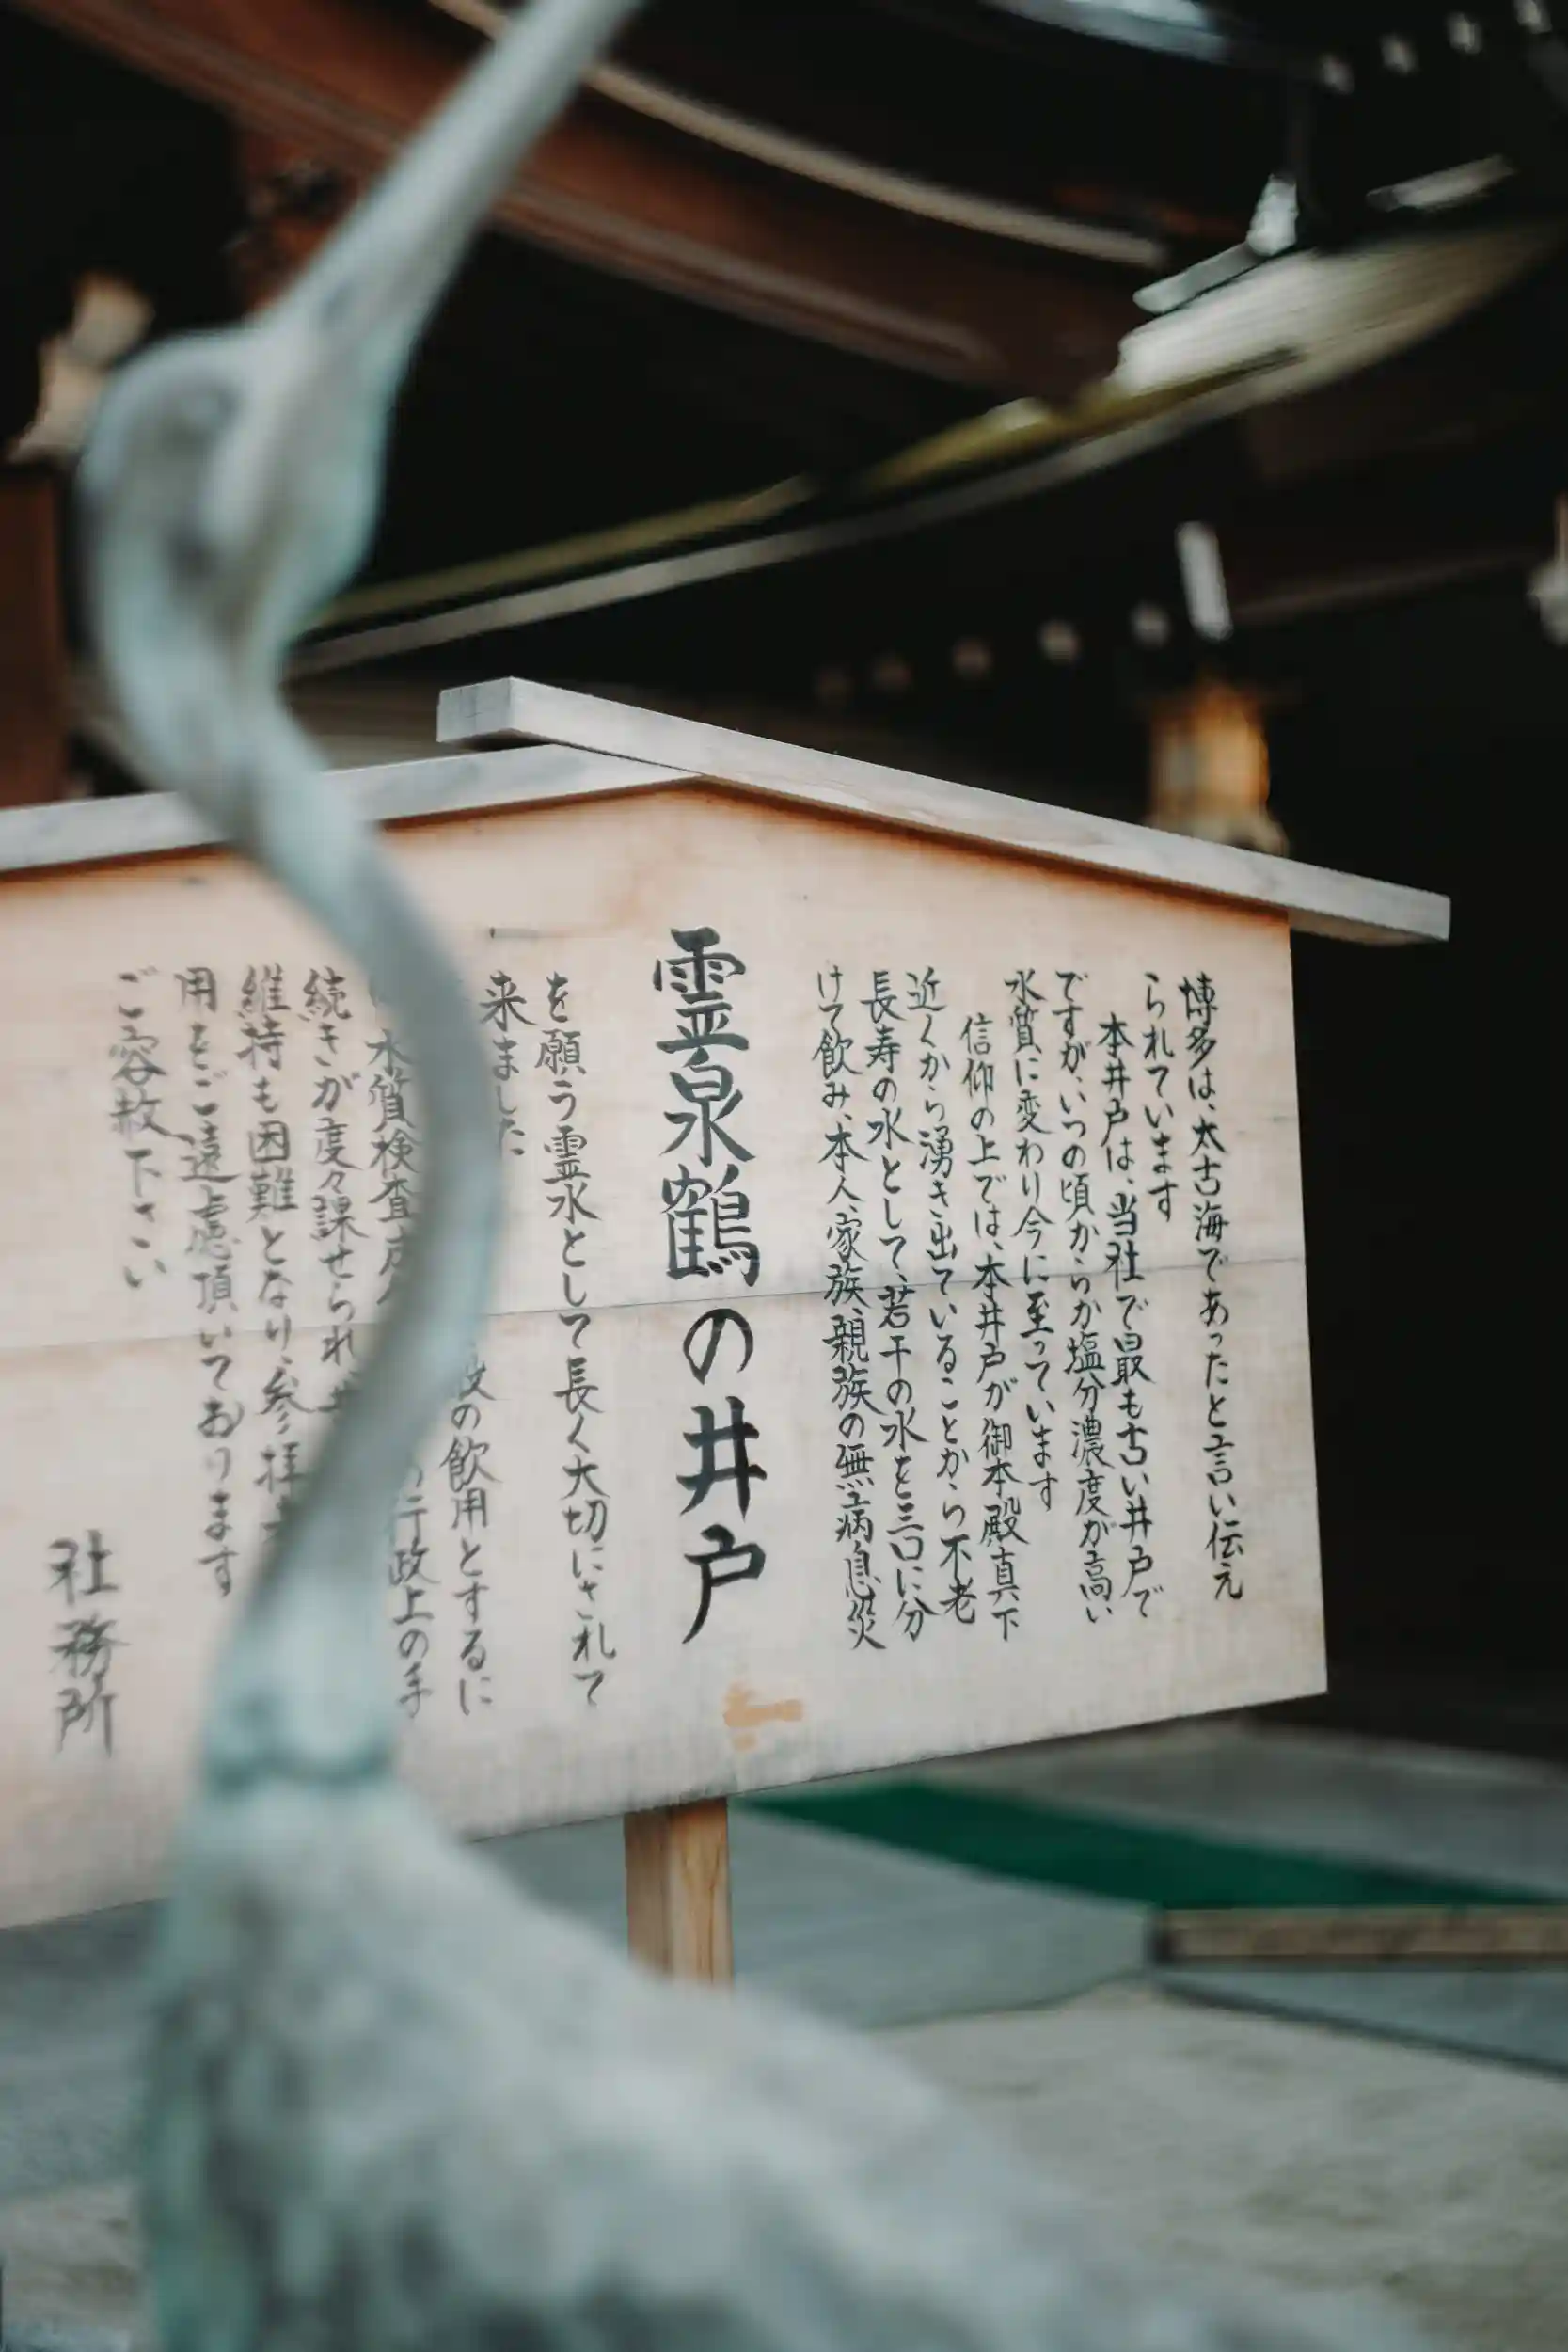 博多は、太古海であったと言い伝え
られています
本井戸は、当社で最も古い井戸で
ですが、いつの頃からか塩分濃度が高い
水質に変わり今に至っています
信仰の上では、本井戸が御本殿真下
近くから湧き出ていることから不老
長寿の水として、若干の水を三口に分
けて飲み、本人、家族、親族の無病息災
霊泉鶴の井戸
を願う霊水として長く大切にされて
来ました
の飲用とするに
水質検査 行政上の手
続きが度々課せられ
維持も困難となり、参拝
用をご遠慮頂いております
ご容赦下さい
社務所